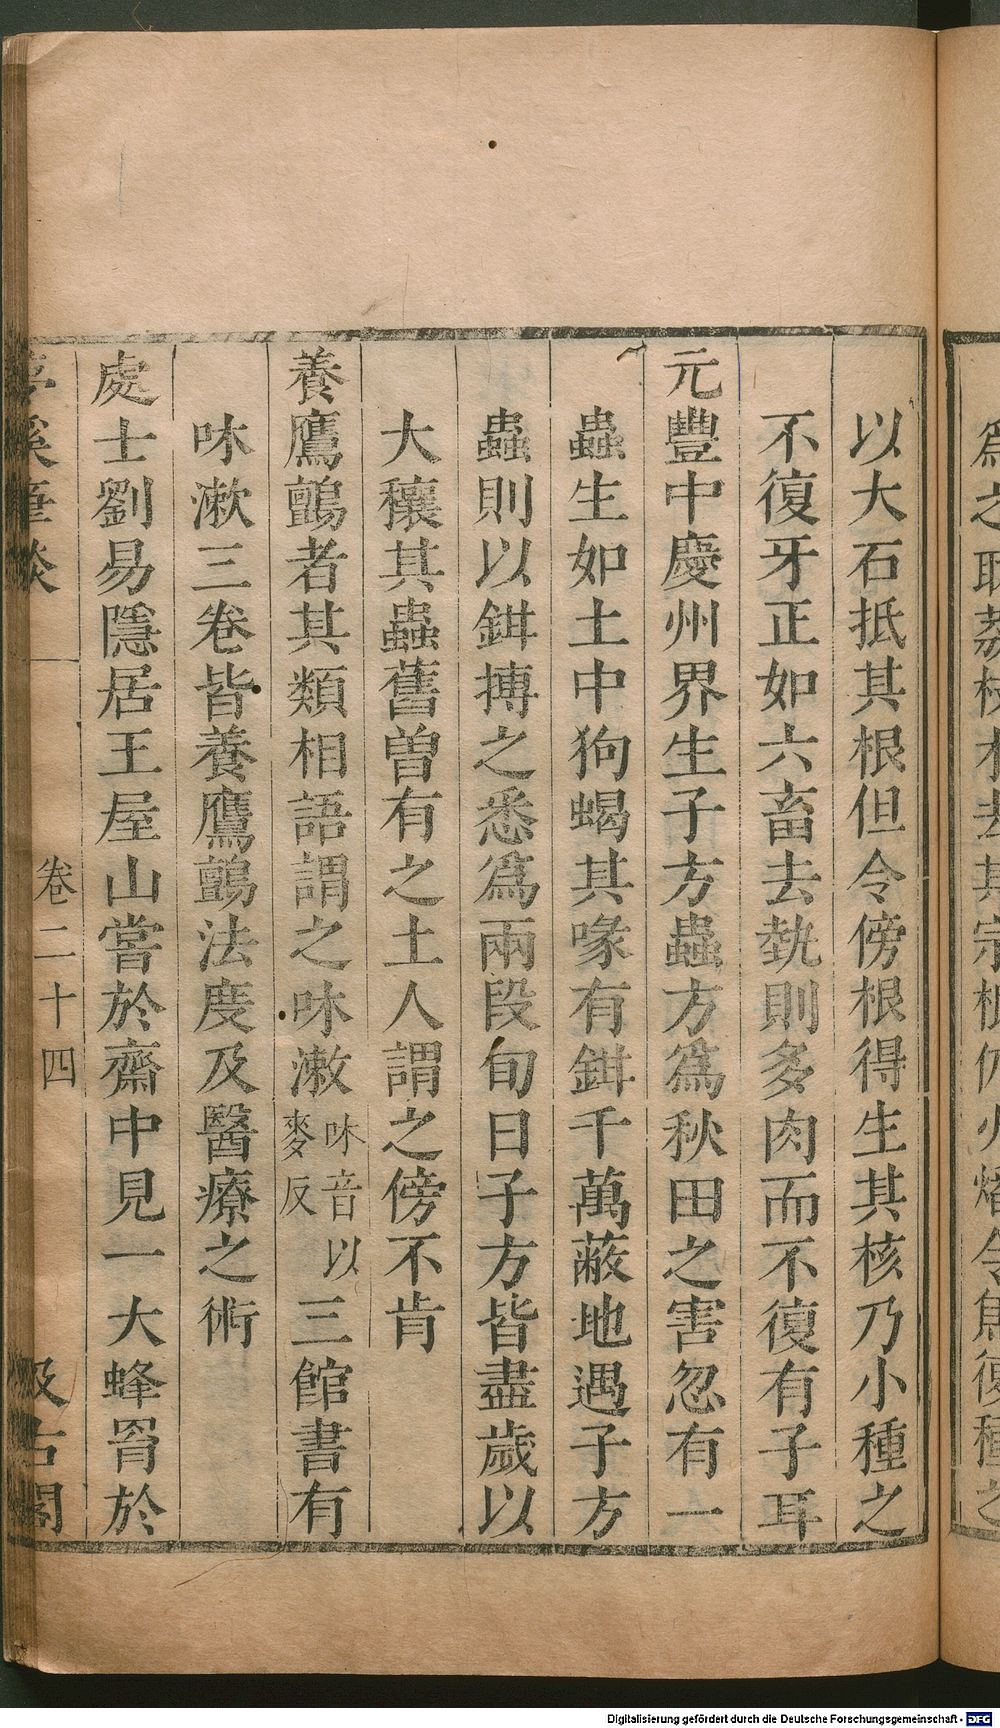 爲之取荔枝木去其宗根仍火燔令焦復種之
以大石抵其根但令傍根得生其核乃小種之
不復牙正如六畜去埶則多肉而不復有子耳
元豐中慶州界生子方蟲方爲秋田之害忽有一
蟲生如土中狗蝎其喙有鉗千萬蔽地遇子方
蟲則以鉗搏之悉爲兩段旬日子方皆盡歲以
大穰其蟲舊曽有之土人謂之傍不肯
養鷹鸇者其類相語謂之㕲漱㕲音以麥反三館書有
㕲漱三卷皆養鷹鸇法度及醫療之術
處士劉易隱居王屋山嘗於齋中見一大蜂罥於
夢溪筆談 卷二十四 汲古閣
Digitalisierung gefördert durch die Deutsche Forschungsgemeinschaft - DFG